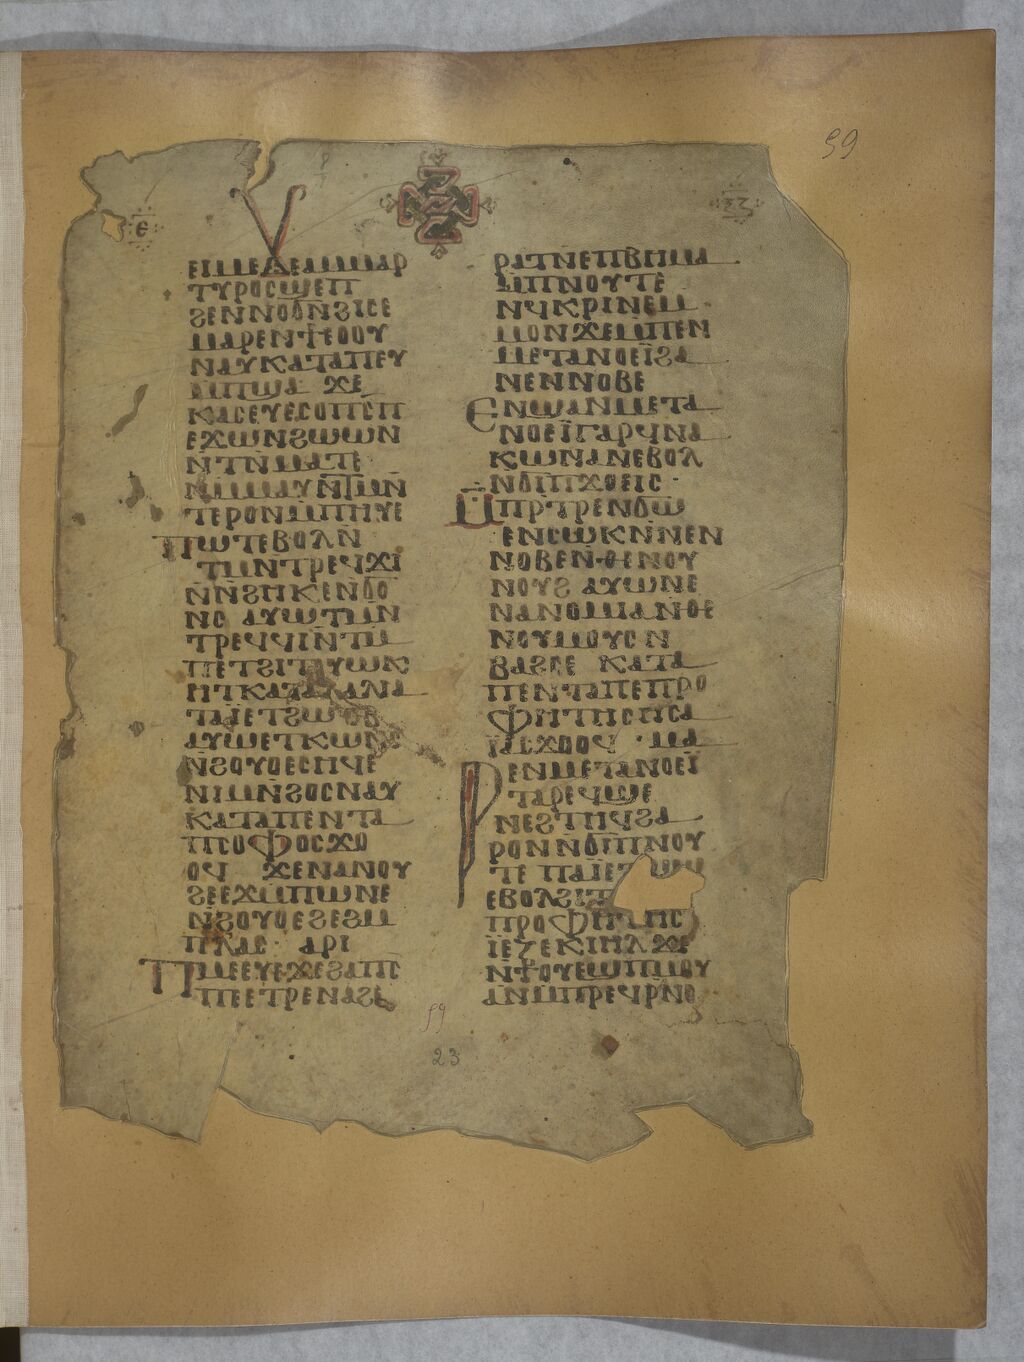 59
ⲉ
ⲝⲍ
ⲉⲓⲙⲉϫⲉⲁⲙⲙⲁⲣ
ⲧⲩⲣⲟⲥϣⲉⲡ
ϩⲉⲛⲛⲟϭⲛϩⲓⲥⲉ
ⲙⲁⲣⲉⲛϯⲉⲟⲟⲩ
ⲛⲁⲩⲕⲁⲧⲁⲡⲉⲩ
ⲙⲡϣⲁ ϫⲉ
ⲕⲁⲥⲉⲩⲉⲥⲟⲡⲥⲡ
ⲉϫⲱⲛϩⲱⲱⲛ
ⲛ̄ⲧⲛ̄ⲙⲁⲧⲉ
ⲛⲙⲙⲁⲩϩⲛⲧⲙⲛ̄
ⲧⲉⲣⲟⲛⲙⲡⲏⲩⲉ
ⲡⲱⲧⲉⲃⲟⲗⲛ̄
ⲧⲙⲛⲧⲣⲉϥϫⲓ
ⲛ̄ⲛϩⲏⲕⲉⲛϭⲟ
ⲛⲥ ⲁⲩⲱⲧⲙⲛ
ⲧⲣⲉϥϥⲓⲛⲧⲙ
ⲡⲉⲧϩⲓⲧⲟⲩⲱⲕ
ⲏⲧⲕⲁⲧⲁⲗⲁⲗⲓⲁ
ⲧⲁⲓⲉⲧϩⲱⲧⲃ
ⲁⲩⲱⲉⲧⲕⲱⲛⲥ
ⲛ̄ϩⲟⲩⲟⲉⲥⲏϥⲉ
ⲛⲓⲙⲛ̄ϩⲟⲥⲛⲁⲩ
ⲕⲁⲧⲁⲡⲉⲛⲧⲁ
ⲡⲥⲟⲫⲟⲥϫⲟ
ⲟϥ ϫⲉⲛⲁⲛⲟⲩ
ϩⲉⲉϫⲙⲡⲱⲛⲉ
ⲛ̄ϩⲟⲩⲟⲉϩⲉϩⲙ
ⲡⲗⲁⲥ· ⲁⲣⲓ
ⲡⲙⲉⲉⲩⲉϫⲉϩⲁⲡⲥ
ⲡⲉⲉⲧⲣⲉⲛⲁϩⲉ
ⲣⲁⲧⲛⲉⲡⲃⲏⲙⲁ
ⲙⲡⲛⲟⲩⲧⲉ
ⲛϥⲕⲣⲓⲛⲉⲙ
ⲙⲟⲛϫⲉⲙⲡⲉⲛ
ⲙⲉⲧⲁⲛⲟⲉⲓ̈ϩⲁ
ⲛⲉⲛⲛⲟⲃⲉ
ⲉⲛϣⲁⲛⲙⲉⲧⲁ
ⲛⲟⲉⲓ̈ⲅⲁⲣϥⲛⲁ
ⲕⲱⲛⲁⲛⲉⲃⲟⲗ
ⲛϭⲓⲡϫⲟⲉⲓⲥ·
ⲙ̄ⲡⲣⲧⲣⲉⲛϭⲱ
ⲉⲛⲥⲱⲕⲛ̄ⲛⲉⲛ
ⲛⲟⲃⲉⲛ·ⲑⲉⲛⲟⲩ
ⲛⲟⲩϩ ⲁⲩⲱⲛⲉ
ⲛⲁⲛⲟⲙⲓⲁⲛⲑⲉ
ⲛⲟⲩⲙⲟⲩⲥⲛ
ⲃⲁϩⲥⲉ ⲕⲁⲧⲁ
ⲡⲉⲛⲧⲁⲡⲉⲡⲣⲟ
ⲫⲏⲧⲏⲥⲏⲥⲁ
ⲓ̈ⲁⲥϫⲟⲟϥ ·ⲙⲁ
ⲣⲉⲛⲙⲉⲧⲁⲛⲟⲉⲓ̈
ⲧⲁⲣⲉϥϣⲉ
ⲛⲉϩⲧⲏϥϩⲁ
ⲣⲟⲛⲛ̄ϭⲓⲡⲛⲟⲩ
ⲧⲉ ⲡⲁⲓ̈ⲉⲧ
ⲉⲃⲟⲗϩⲓⲧ
ⲡⲣⲟⲫⲏⲧⲏⲥ
ⲓ̈ⲉⲍⲉⲕⲓⲏⲗϫⲉ
ⲛϯⲟⲩⲉϣⲡⲙⲟⲩ
ⲁⲛⲙⲡⲣⲉϥⲣⲛⲟ
59
23